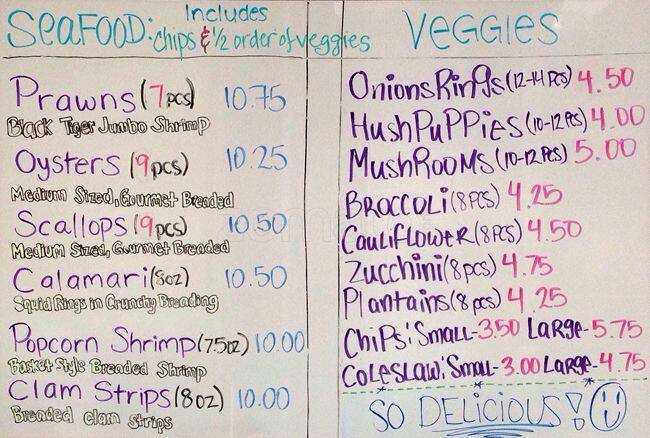 SEAFOOD: Includes
chips & 1/2 order of veggies
Prawns (7pcs) 10.75
Black Tiger Jumbo Shrimp
Oysters (9pcs) 10.25
Medium Sized, Gourmet Breaded
Scallops (9pcs) 10.50
Medium Sized, Gourmet Breaded
Calamari (8oz) 10.50
Squid Rings in Crunchy Breading
Popcorn Shrimp (7.5oz) 10.00
Basket Style Breaded Shrimp
Clam Strips (8oz) 10.00
Breaded clam strips
VEGGIES
Onions Rings (12-14 pcs) 4.50
HushPuPPies (10-12 Pcs) 4.00
MushRooms (10-12 Pcs) 5.00
BROCCOLi (8 PCS) 4.25
CauliFloweR (8 PCS) 4.50
Zucchini (8 pcs) 4.75
Plantains (8 pcs) 4.25
ChiPs: Small-3.50 LaRge-5.75
Coleslaw: Small-3.00 LaRge-4.75
SO DELICIOUS!